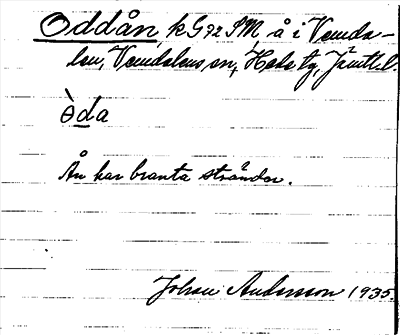 Oddån, k G 92 SM å i Vemda-
len, Vemdalens sn, Heds tg, Jämtl.
òda
Ån har branta stränder.
Johan Andersson 1935.